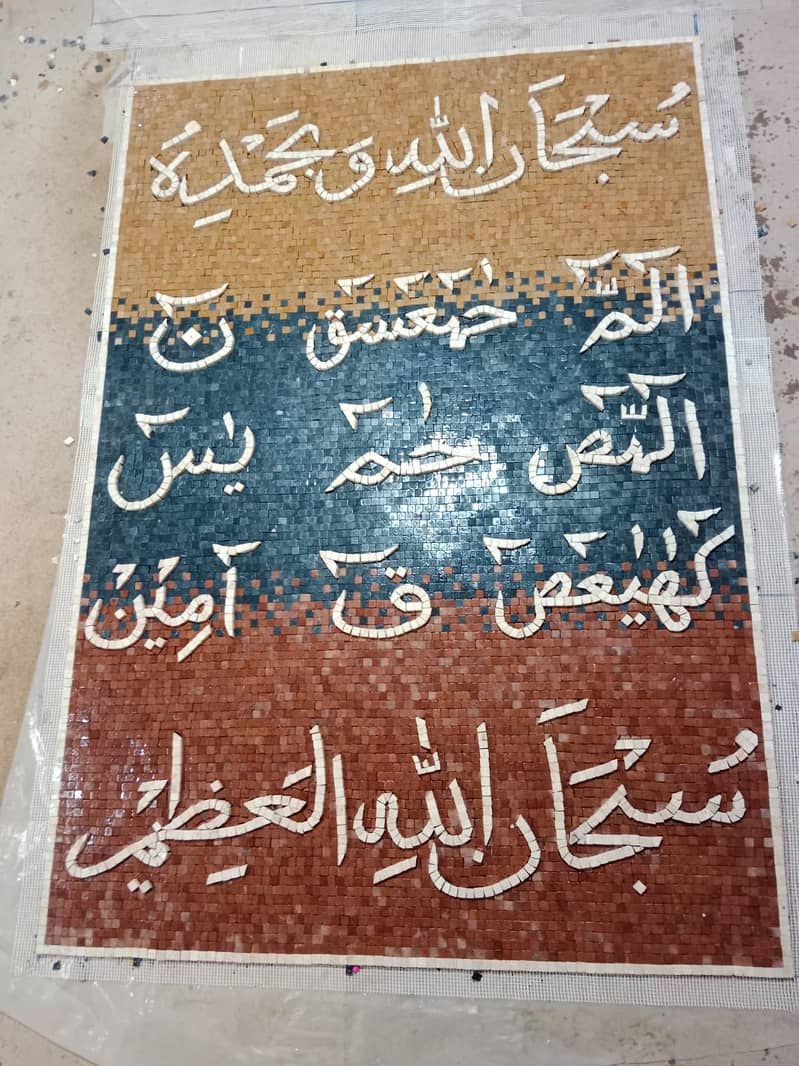 سُبْحَانَ اللهِ وَبِحَمْدِهِ
الٓمّٓ حٰمٓعٓسٓقٓ نٓ
الٓمّٓصٓ حٰمٓ يٰسٓ
كٓهٰيٰعٓصٓ قٓ آمِيْنْ
سُبْحَانَ اللهِ الْعَظِيْمِ